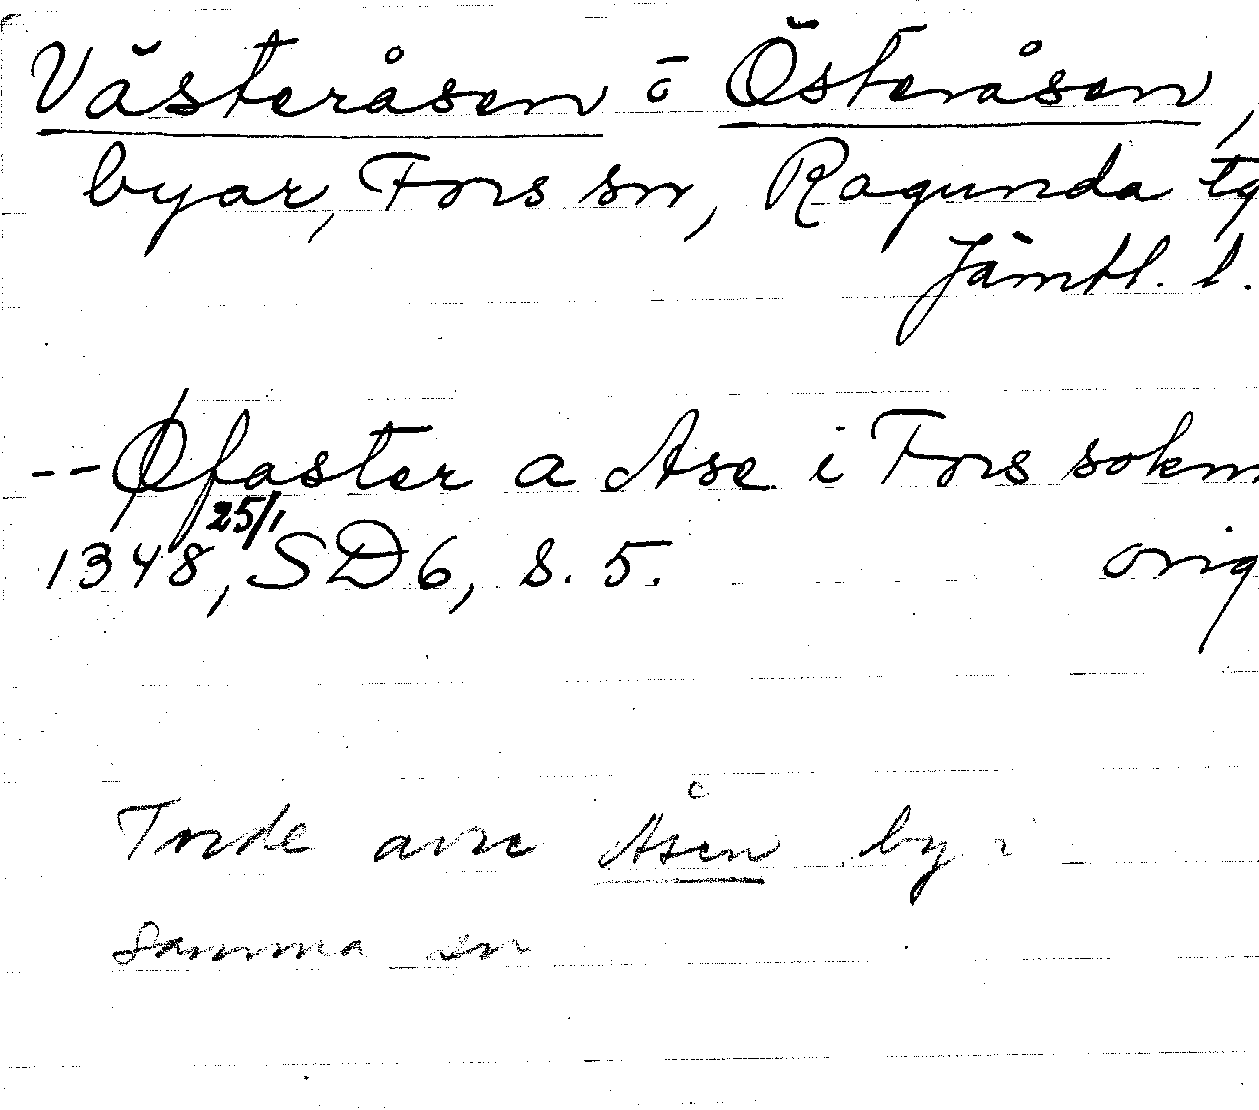 Västeråsen o Österåsen,
byar, Fors sn, Ragunda tg
Jämtl. l.
-- Øfaster a Ase i Fors sokn
1348 25/1, SD 6, s. 5. orig
Torde avse Åsen by i
samma sn